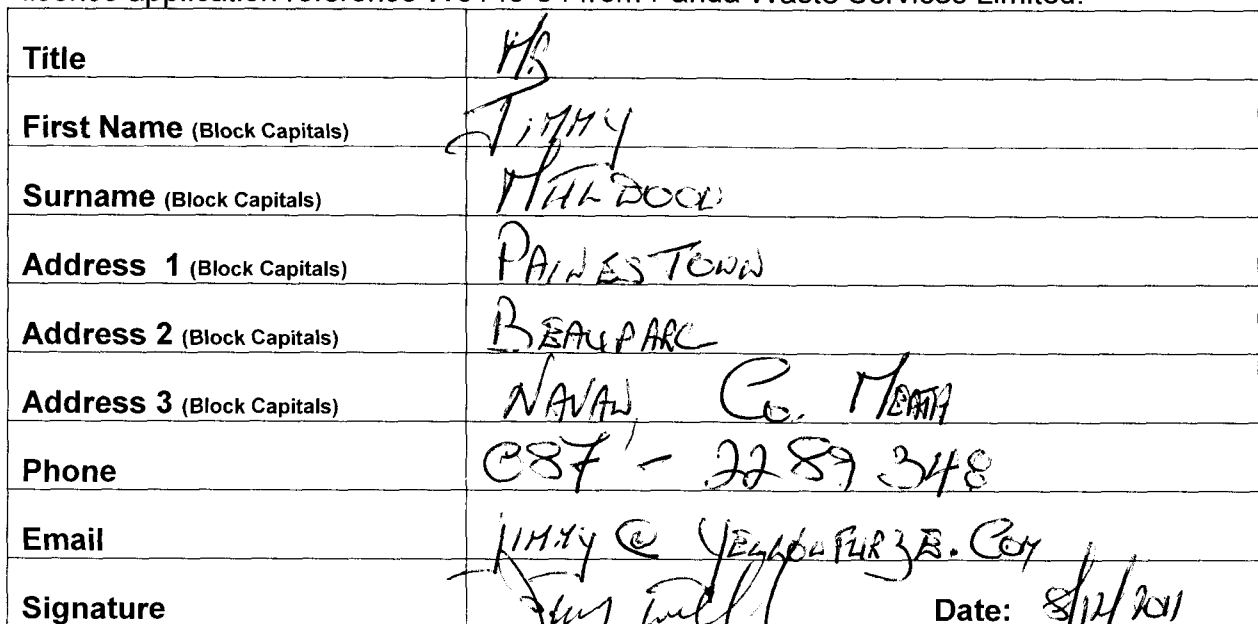 licence application reference W0140-04 from Panda Waste Services Limited.
Title Mr
First Name (Block Capitals) JIMMY
Surname (Block Capitals)
Address 1 (Block Capitals) PAINESTOWN
Address 2 (Block Capitals) BEAUPARC
Address 3 (Block Capitals) NAVAN, Co. MEATH
Phone 087 - 2289 348
Email JIMMY @ YELLOWFURZE.COM
Signature Date: 8/12/2011